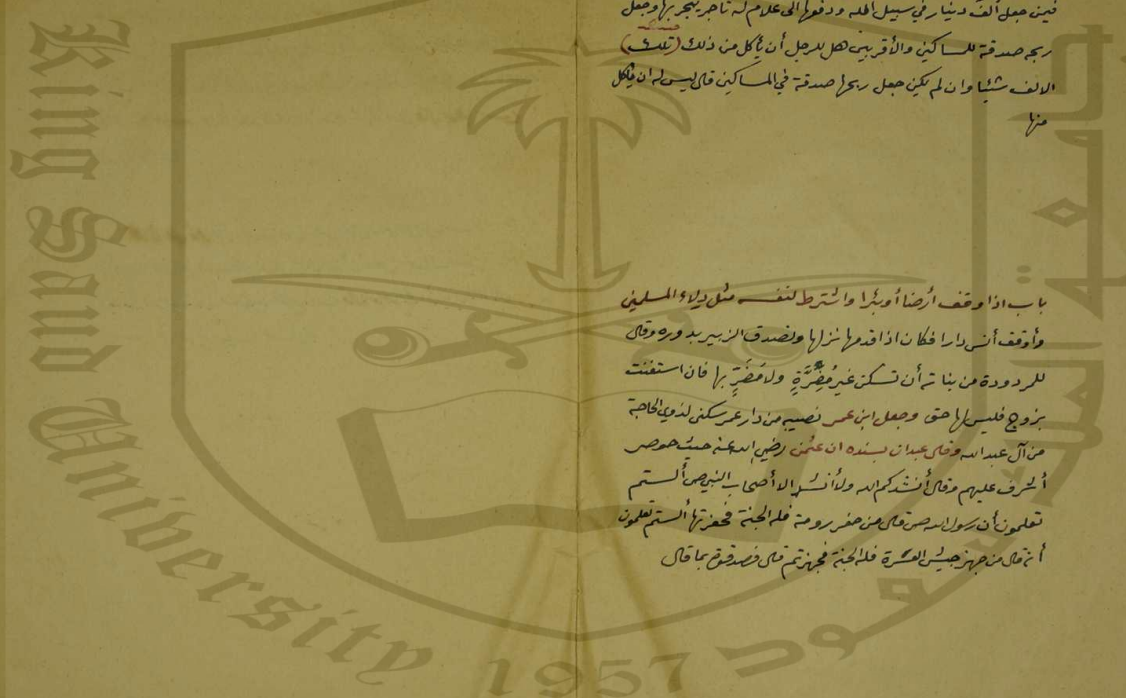 فيمن جعل ألف دينار في سبيل الله ودفعها الى غلام له تاجر يتجر بها وجعل
ربحه صدقة للمساكين والأقربين هل للرجل أن يأكل من ذلك (تلك)
الالف شيئا وان لم يكن جعل ربحها صدقة في المساكين قال ليس له ان يأكل
منها
باب اذا وقف أرضا أو بئرا واشترط لنفسه مثل دلاء المسلمين
وأوقف أنس دارا فكان اذا قدمها نزلها وتصدق الزبير بدوره وقال
للمردودة من بناته أن تسكن غير مُضِرَّةٍ ولا مُضَرٍّ بها فان استغنت
بزوج فليس لها حق وجعل ابن عمر نصيبه من دار عمر سكنى لذوي الحاجة
من آل عبد الله وقال عبدان بسنده ان عثمن رضي الله عنه حيث حوصر
أشرف عليهم وقال أنشدكم الله ولا أنشد الا أصحاب النبي ص ألستم
تعلمون أن رسول الله ص قال من حفر رومة فله الجنة فحفرتها ألستم تعلمون
أنه قال من جهز جيش العسرة فله الجنة فجهزتم قال فصدقوه بما قال
King Saud University
1957
جامعة الملك سعود